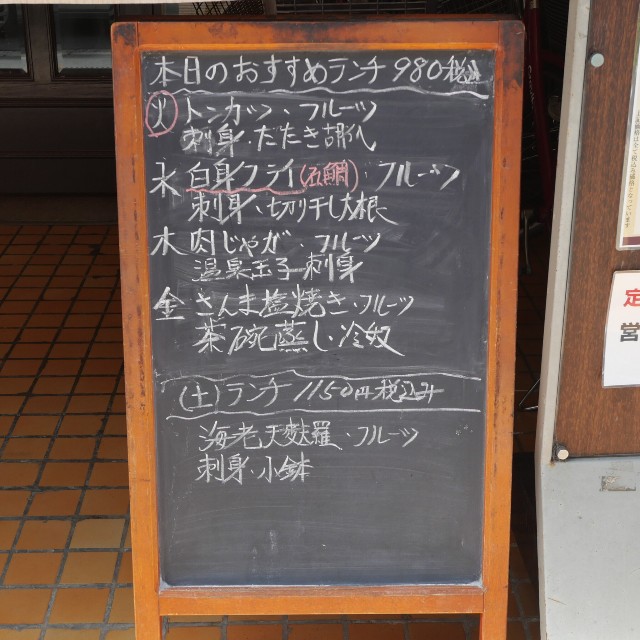 本日のおすすめランチ 980税込
火 トンカツ・フルーツ
刺身・たたき胡瓜
水 白身フライ(石鯛)・フルーツ
刺身・切り干し大根
木 肉じゃが・フルーツ
温泉玉子・刺身
金 さんま塩焼き・フルーツ
茶碗蒸し・冷奴
(土)ランチ 1150円税込み
海老天麩羅・フルーツ
刺身・小鉢
定
営